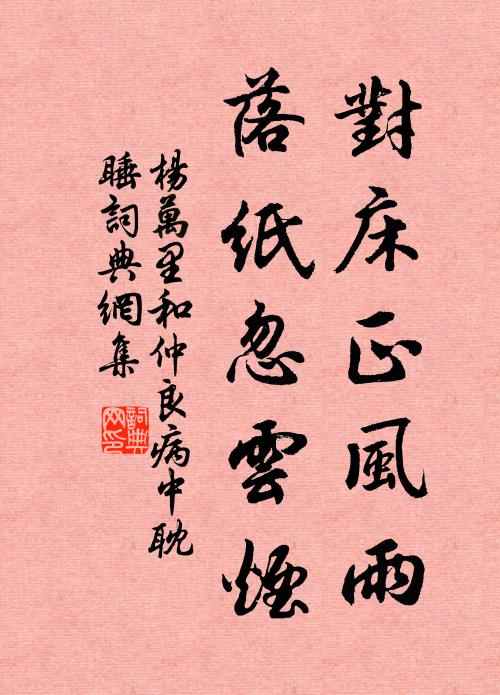 對床正風雨
落紙忽雲煙
楊萬里和仲良病中耽
睡詞典網集
詞典
网印